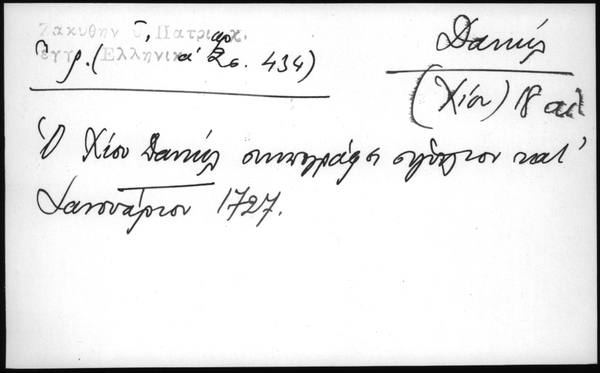 Ζακυθην ῦ, Πατριαρχ.
ἔγγρ. (Ἑλληνικὰ 2 σ. 434)
Δανιήλ
(Χίου) 18 αἰ
Ὁ Χίου Δανιήλ συνυπογράφει σιγίλλιον κατ'
Ἰανουάριον 1727.